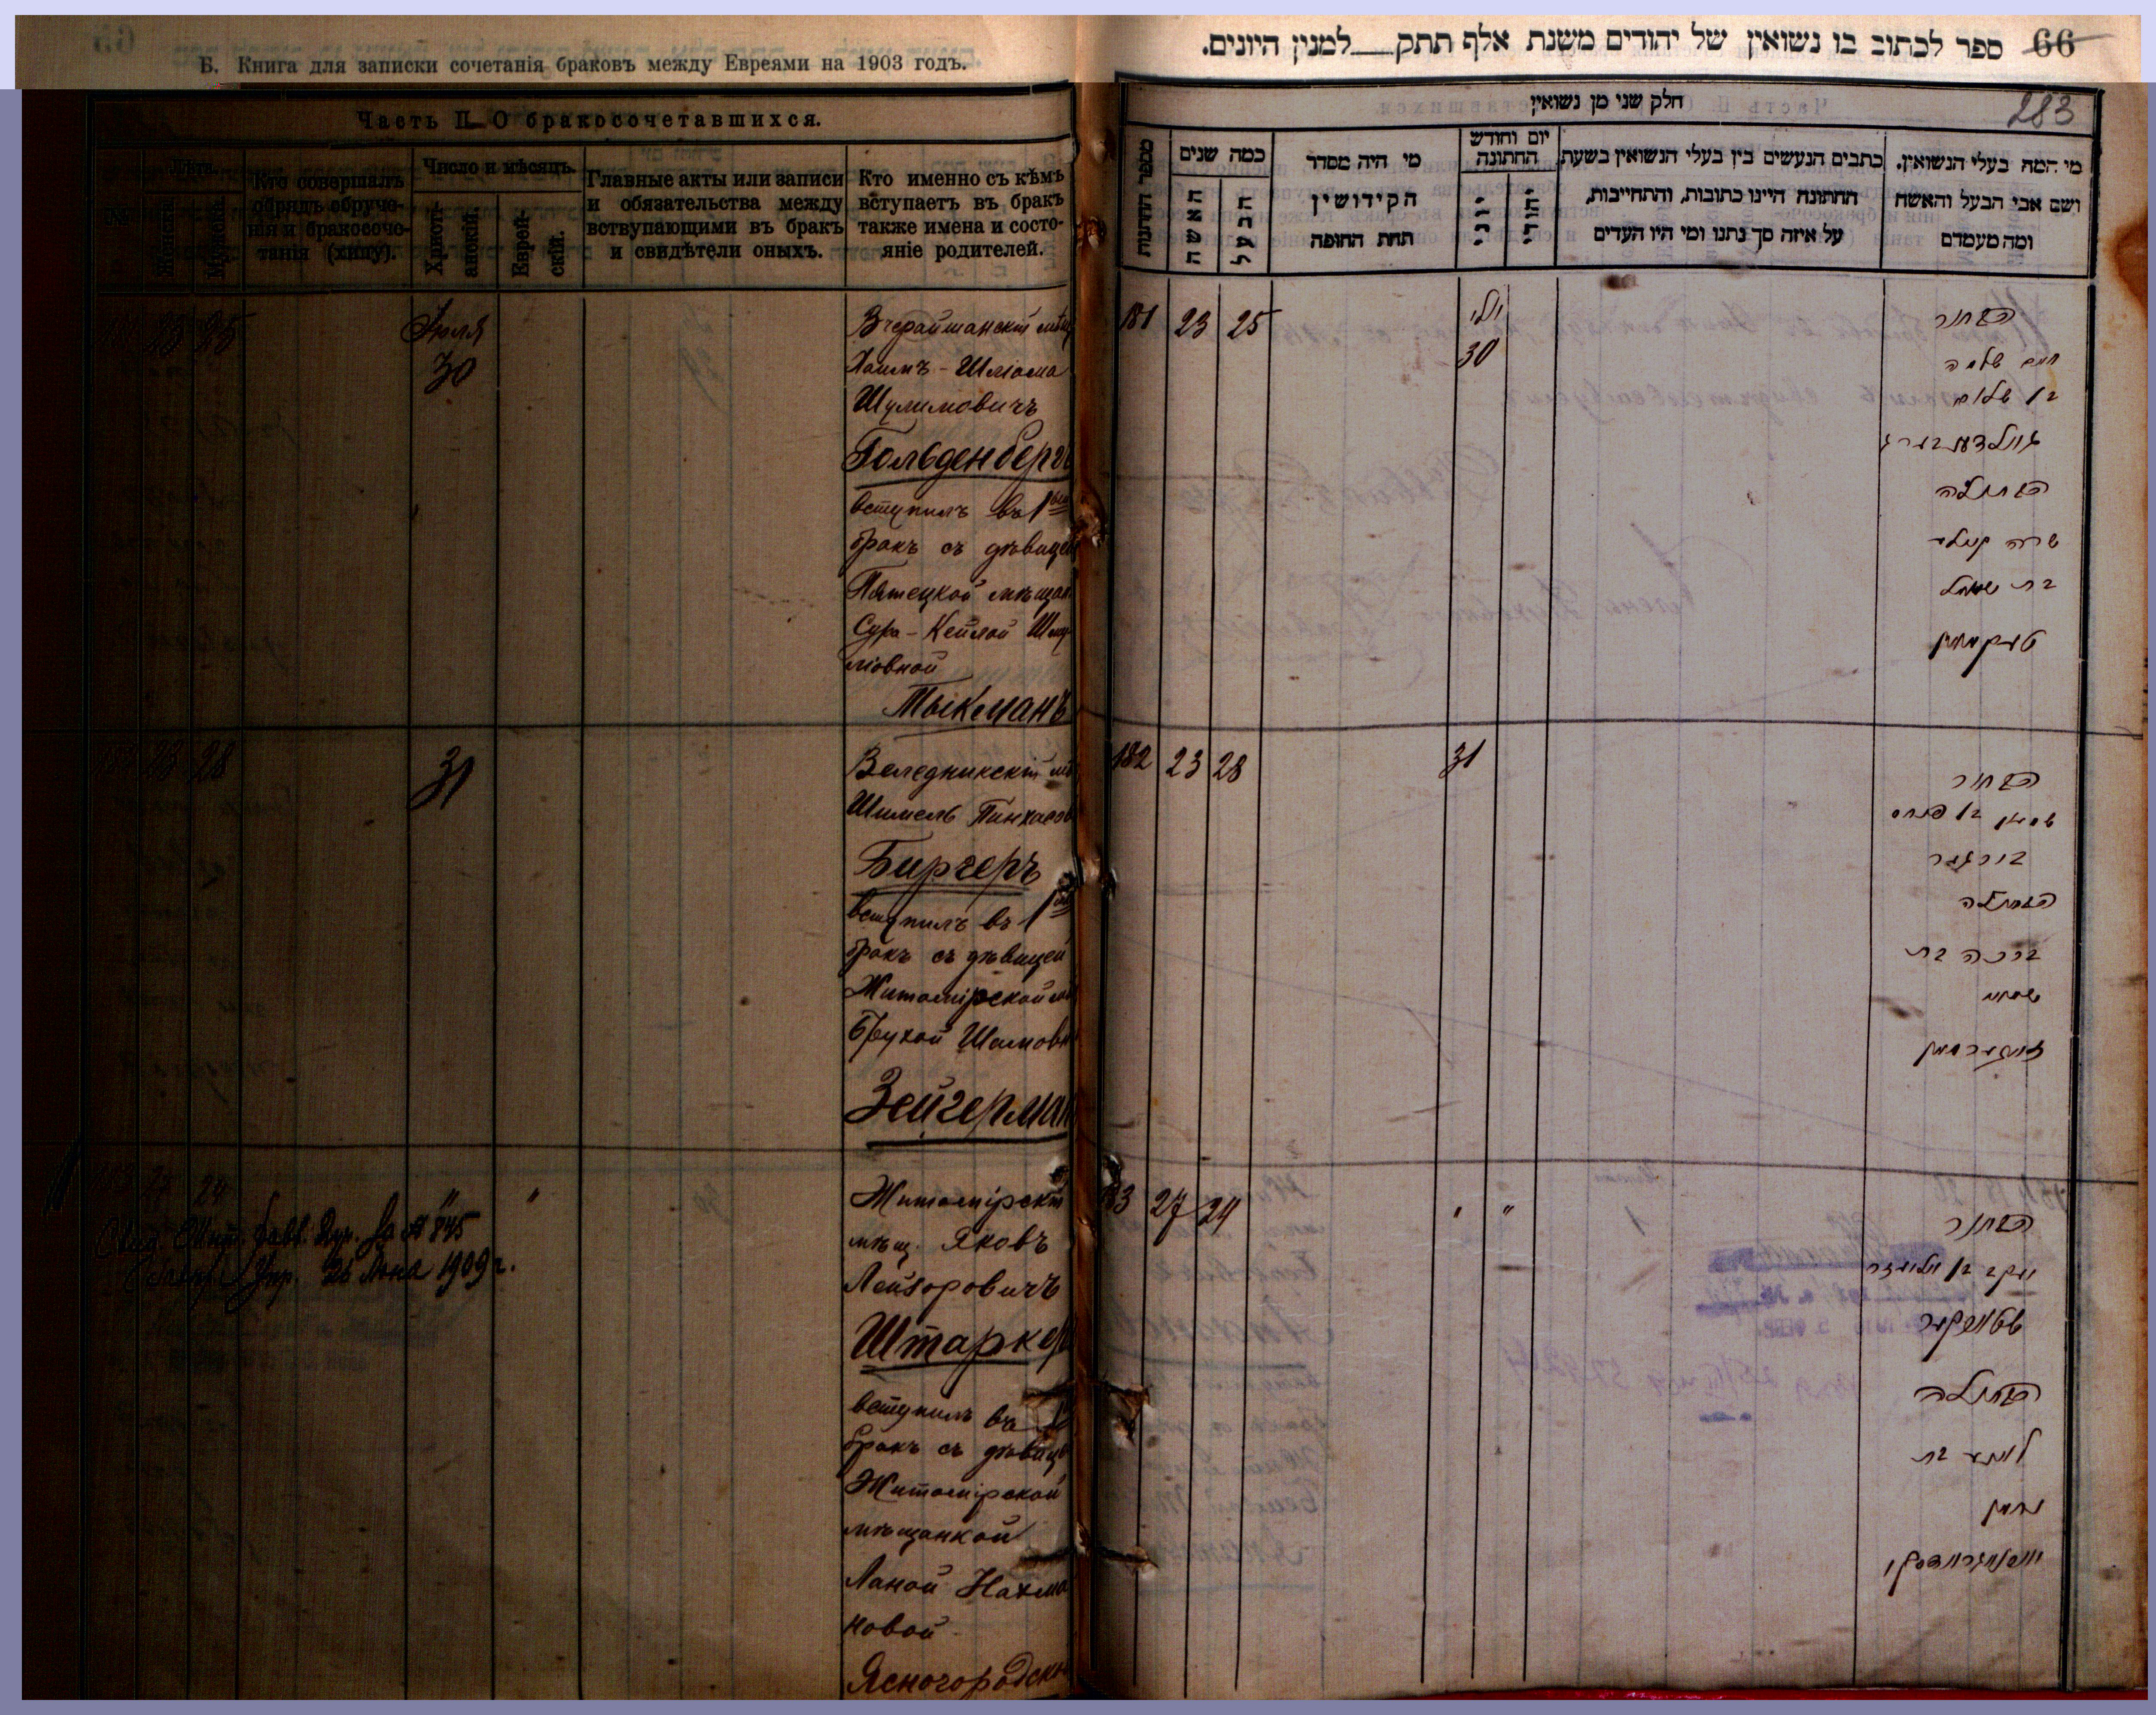 Б. Книга для записки сочетанія браковъ между Евреями на 1903 годъ.
Часть II. О бракосочетавшихся.
№
Лѣта.
Женска
Мужска
Кто совершалъ
обрядъ обруче-
нія и бракосоче-
танія (хипу).
Число и мѣсяцъ.
Христі-
анскій.
Еврей-
скій.
Главные акты или записи
и обязательства между
вступающими въ бракъ
и свидѣтели оныхъ.
Кто именно съ кѣмъ
вступаетъ въ бракъ
также имена и состо-
яніе родителей.
181 23 25
Іюля
30
Вчерайшанскій мѣщ
Хаимъ-Шліома
Шулимовичъ
Гольденбергъ
вступилъ въ 1
бракъ съ дѣвицей
Пятецкой мѣщан
Сура-Кейлой Шму
ліовной
Тыкманъ
182 23 28
31
Веледникскій мѣ
Шимель Пинхасов
Биргеръ
вступилъ въ 1
бракъ съ дѣвицей
Житомірской мѣ
Брухой Шамовн
Зейгерман
27 24
" "
845
26 1909 г.
Житомірскій
мѣщ. Яковъ
Лейзоровичъ
Штаркер
вступилъ въ 1
бракъ съ дѣвице
Житомірской
мѣщанкой
Ланой Нахма
новой
Ясногородск
66 ספר לכתוב בו נשואין של יהודים משנת אלף תתק__למנין היונים.
חלק שני מן נשואין
283
מספר החתונות
כמה שנים
האשה
הבעל
מי היה מסדר
הקידושין
תחת החופה
יום וחודש
החתונה
יוני
יהודי
כתבים הנעשים בין בעלי הנשואין בשעת
החתונה היינו כתובות, והתחייבות,
על איזה סך נתנו ומי היו העדים
מי המה בעלי הנשואין.
ושם אבי הבעל והאשה
ומה מעמדם
181 23 25
יולי
30
הבחור
חיים שלמה
בן שלום
גולדענבערג
הבתולה
שרה קיילע
בת שמואל
טיקמאן
182 23 28
31
הבחור
שמעון בן פנחס
בירגער
הבתולה
ברכה בת
שמחה
זייגערמאן
183 27 24
" "
הבחור
יעקב בן אליעזר
שטארקער
הבתולה
לאנע בת
נחמן
יאסנאגראדסקי